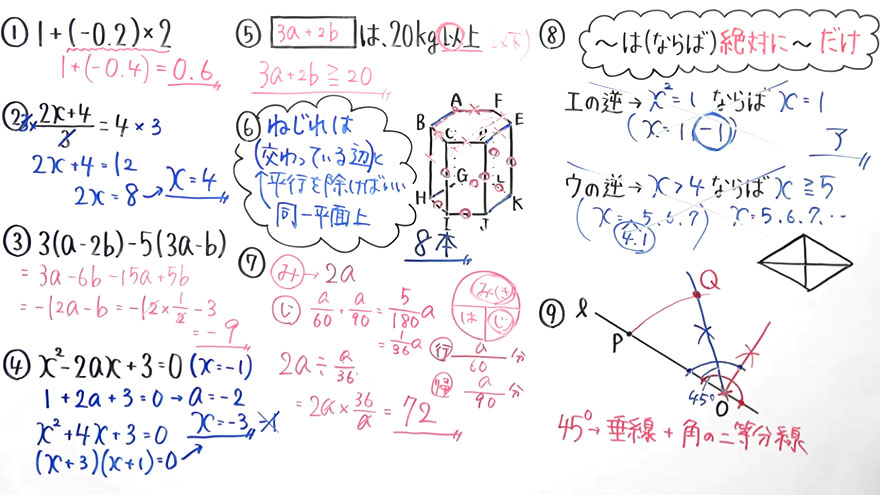 ① 1+(-0.2)×2
1+(-0.4)=0.6
② 3×(2x+4)/3=4×3
2x+4=12
2x=8→x=4
③ 3(a-2b)-5(3a-b)
=3a-6b-15a+5b
=-12a-b=-12×1/2-3
=-9
④ x²-2ax+3=0(x=-1)
1+2a+3=0→a=-2
x²+4x+3=0 x=-3
(x+3)(x+1)=0
⑤ 3a+2b は、20kg以上
3a+2b≧20
⑥ ねじれは
(交わっている辺)と
平行を除けばいい
同一平面上
A F
B E
C D
G L
H K
I J
8本
⑦ み→2a
じ a/60+a/90=5/180a
=1/36a
2a÷a/36
=2a×36/a=72
みき
は じ
行 a/60分
帰 a/90分
⑧ ～は(ならば)絶対に～だけ
エの逆→x²=1 ならば x=1
(x=1,-1)
ウの逆→x>4 ならば x≧5
(x=…5.6.7) x=5.6.7…
4.1
⑨ ℓ
Q
P
45° O
45°→垂線+角の二等分線